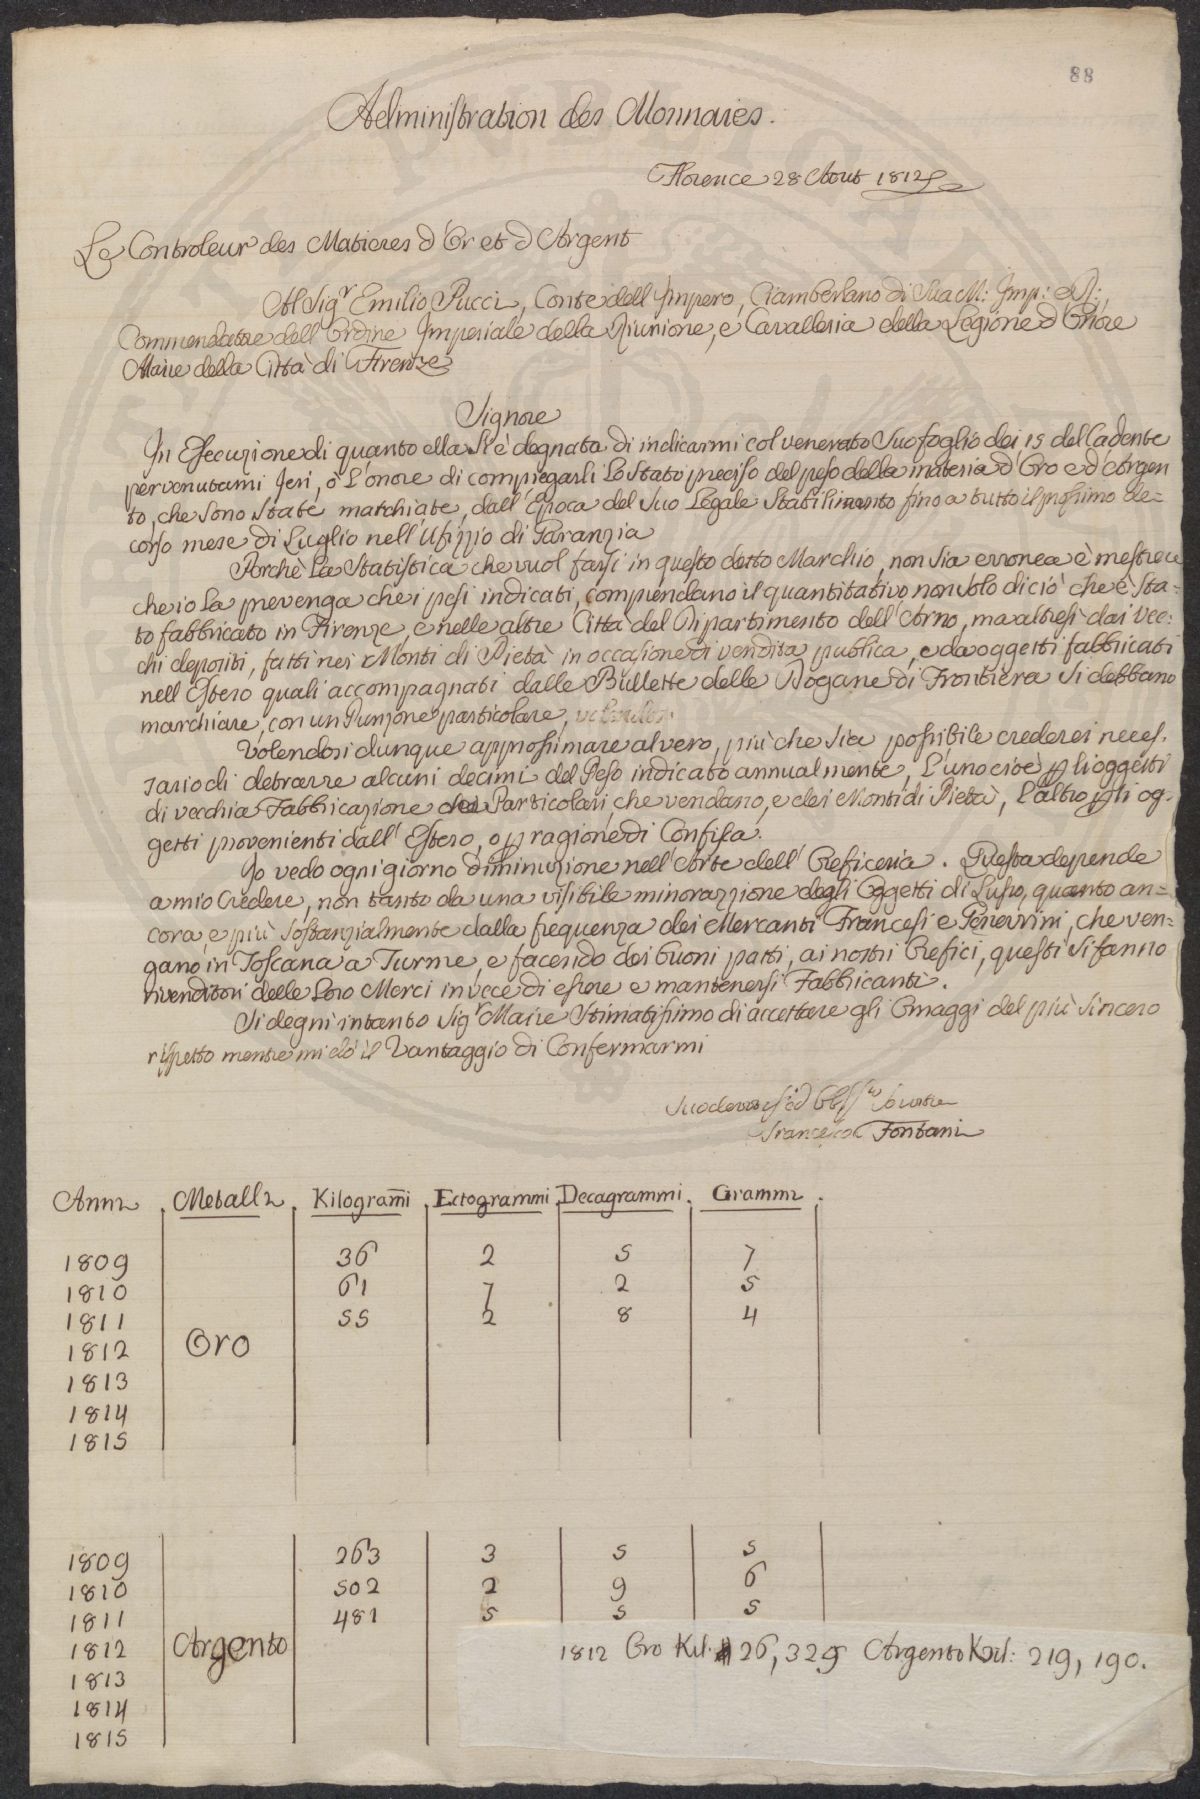 88
Administration des Monnaies.
Florence 28 Aout 1812
Le Controleur des Matieres d'Or et d'Argent
Al Sigr Emilio Pucci, Conte dell'Impero, Ciamberlano di Sua M: Imp: e R:,
Commendatore dell'Ordine Imperiale della Riunione, e Cavalleria della Legione d'Onore
Maire della Città di Firenze
Signore
In Esecuzione di quanto ella si è degnata di indicarmi col venerato Suo foglio dei 15 del Cadente
pervenutami Jeri, ò L'onore di compiegarli Lo Stato preciso del peso della materia d'Oro e d'Argen
to, che sono state marchiate, dall'Epoca del Suo Legale Stabilimento fino a tutto il prossimo de=
corso mese di Luglio nell'Ufizzio di Garanzia
Perchè La Statistica che vuol farsi in questo detto Marchio, non sia erronea è mestiere
che io La prevenga che i pesi indicati, comprendano il quantitativo non solo di ciò che è Sta=
to fabbricato in Firenze, e nelle altre Città del Dipartimento dell'Arno, ma altresì dai Vec=
chi depositi, fatti nei Monti di Pietà in occasione di vendita publica, e da oggetti fabbricati
nell'Estero quali accompagnati dalle Bullette delle Dogane di Frontiera si debbano
marchiare, con un Punzone particolare,
Volendosi dunque approssimare al vero, più che sia possibile crederei neces.
sario di detrarre alcuni decimi del Peso indicato annualmente, L'uno cioè p gli oggetti
di vecchia Fabbricazione che Particolari, che vendano, e dei Monti di Pietà, L'altro p gli og-
getti provenienti dall'Estero, o p ragione di Confisca.
Io vedo ogni giorno diminuzione nell'Arte dell'Oreficeria. Questa depende
a mio Credere, non tanto da una visibile minorazzione degli Oggetti di Lusso, quanto an=
cora, e più sostanzialmente dalla frequenza dei Mercanti Francesi e Genevrini, che ven=
gano in Toscana a Turme, e facendo dei buoni patti, ai nostri Orefici, questi si fanno
rivenditori delle Loro Merci in vece di essere e mantenersi Fabbricanti.
Si degni intanto Sigr Maire Stimatissimo di accettare gli Omaggi del più Sincero
rispetto mentre mi dò il Vantaggio di Confermarmi
Francesco Fontani
Anni . Metalli . Kilogrammi . Ectogrammi . Decagrammi . Grammi .
1809 36 2 5 7
1810 61 7 2 5
1811 55 2 8 4
1812 Oro
1813
1814
1815
1809 263 3 5 5
1810 502 2 9 6
1811 481 5 5 5
1812 Argento 1812 Oro Kil. 26,329 Argento Kil: 219,190.
1813
1814
1815